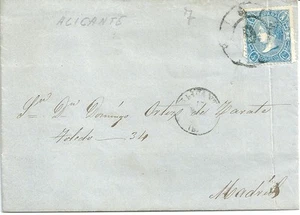 ALICANTE
7
Sr. Dn. Domingo Ortiz de Zarate
Toledo — 34
Madrid